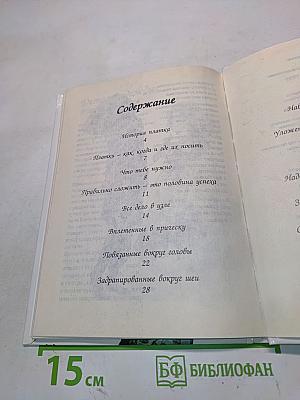 Содержание
История платка
4
Платки – как, когда и где их носить
7
Что тебе нужно
8
Правильно сложить – это половина успеха
11
Все дело в узле
14
Вплетенные в прическу
18
Повязанные вокруг головы
22
Задрапированные вокруг шеи
28
15 см
БФ БИБЛИОФАН